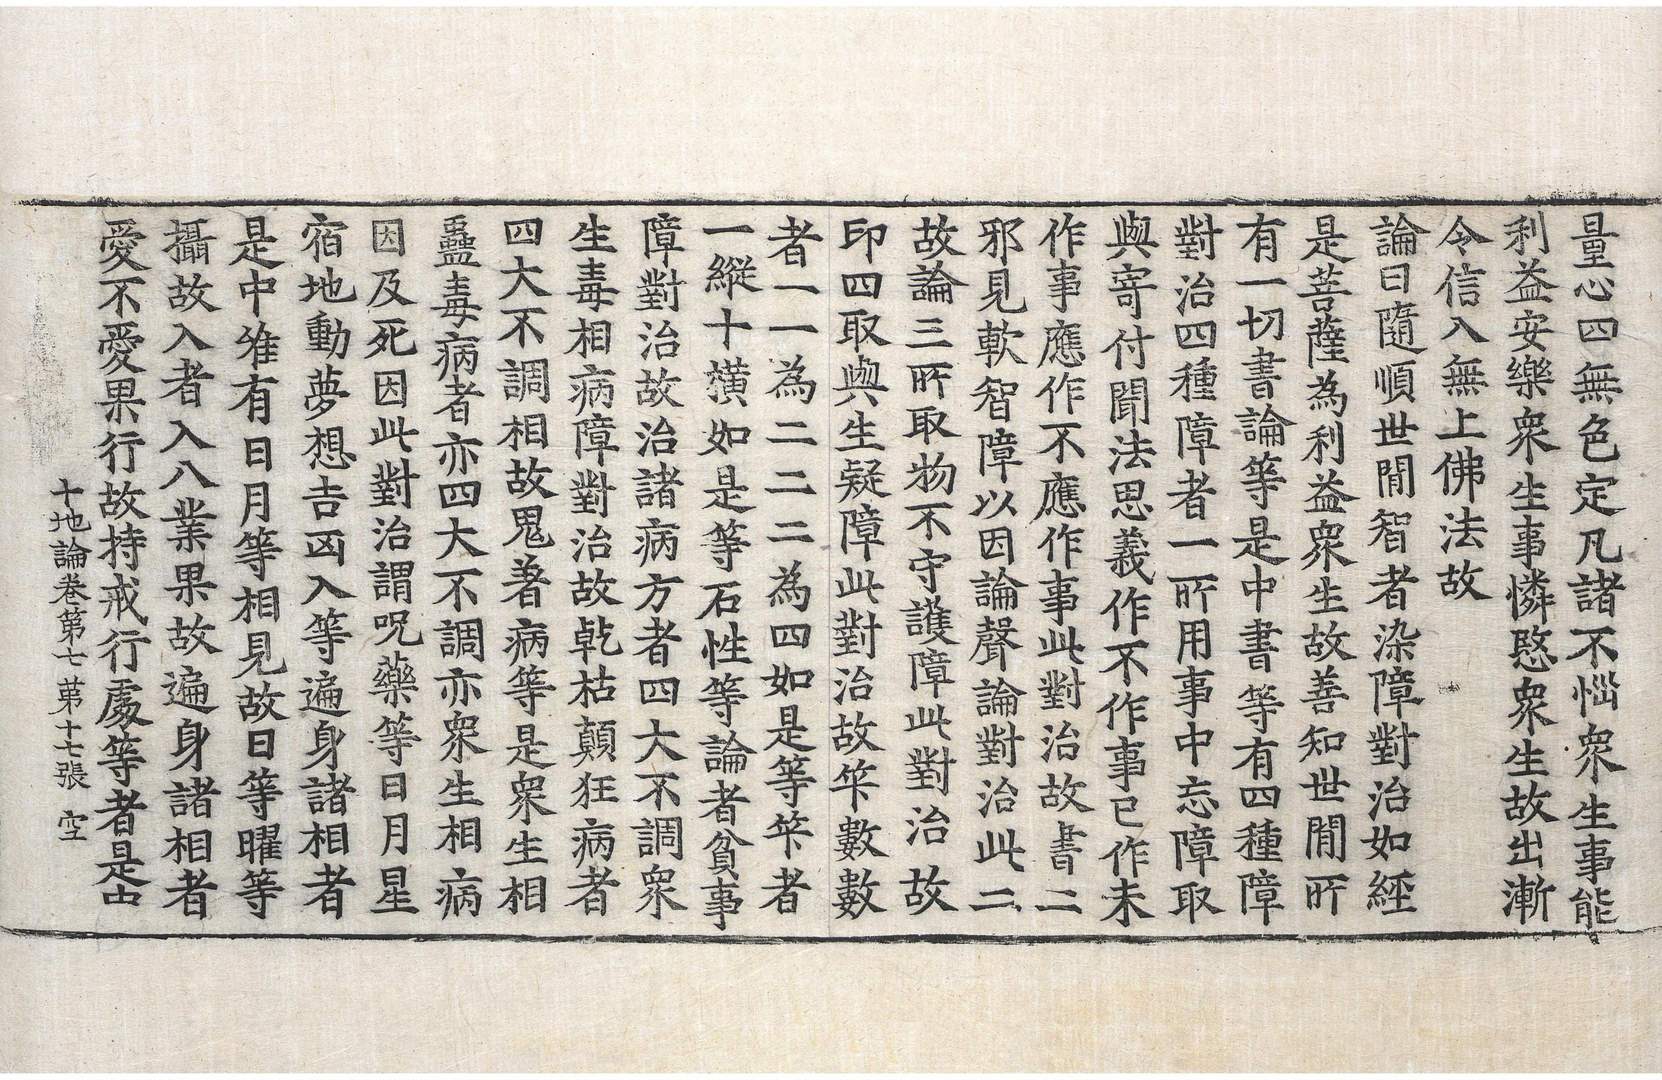 量心四無色定凡諸不惱衆生事能
利益安樂衆生事憐愍衆生故出漸
令信入無上佛法故
論曰隨順世閒智者染障對治如經
是菩薩為利益衆生故善知世閒所
有一切書論等是中書等有四種障
對治四種障者一所用事中忘障取
與寄付聞法思義作不作事已作未
作事應作不應作事此對治故書二
邪見軟智障以因論聲論對治此二
故論三所取物不守護障此對治故
印四取與生疑障此對治故笇數數
者一一為二二二為四如是等笇者
一縱十橫如是等石性等論者貧事
障對治故治諸病方者四大不調衆
生毒相病障對治故乾枯顛狂病者
四大不調相故鬼著病等是衆生相
蠱毒病者亦四大不調亦衆生相病
因及死因此對治謂呪藥等日月星
宿地動夢想吉凶入等遍身諸相者
是中唯有日月等相見故日等曜等
攝故入者入八業果故遍身諸相者
愛不愛果行故持戒行處等者是中
十地論卷第七 苐十七張 空